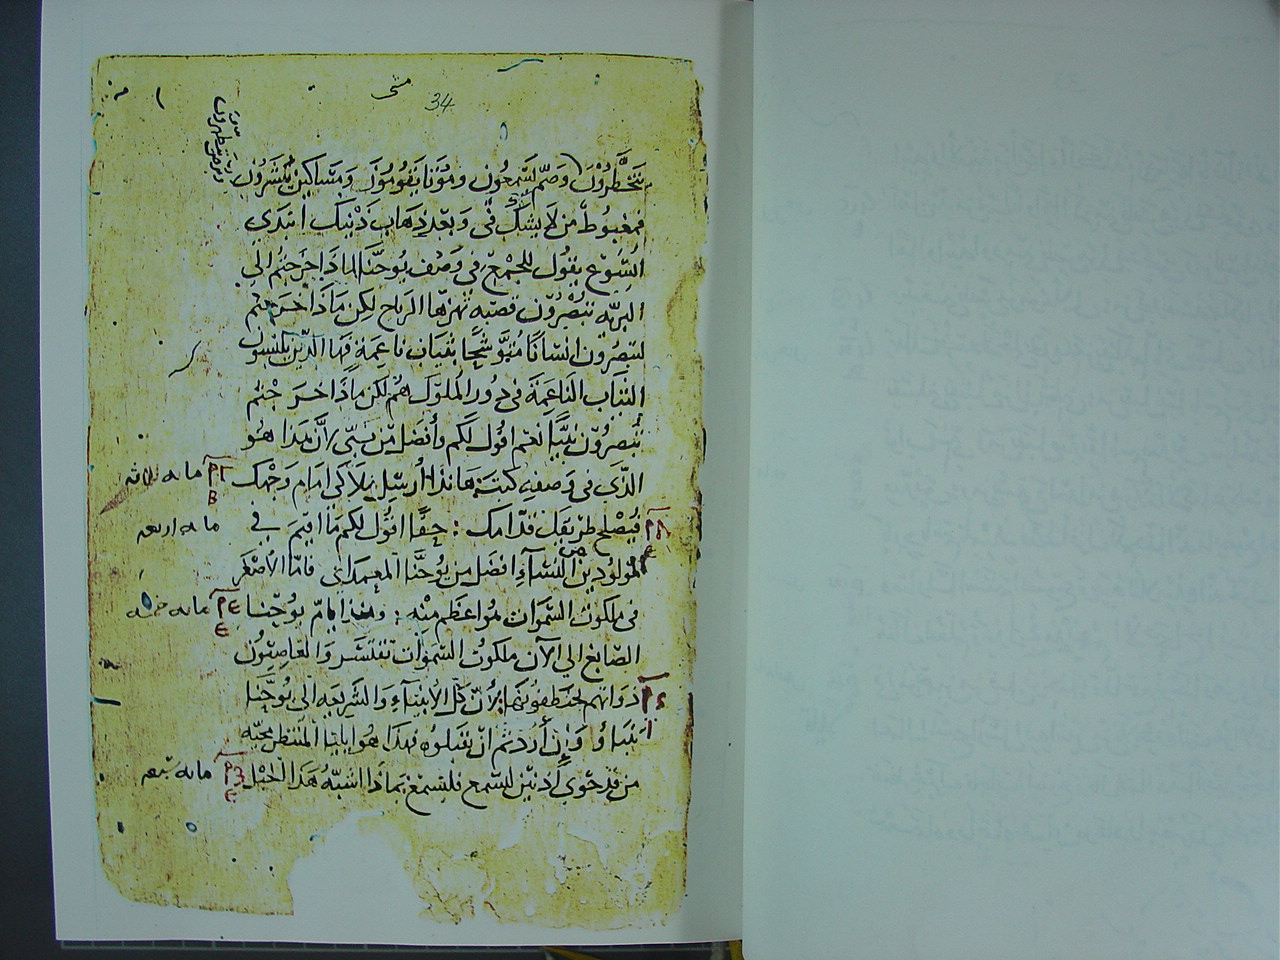 متى
34
وبرص يتطهرون
يتخطرون وصم يسمعون وموتا يقومون ومساكين يبشرون
فمغبوط من لا يشك في وبعد ذهاب ذنيك ابتدي
ايسوع يقول للجمع في وصف يوحنا لماذا خرجتم الي
البريه تبصرون قصبه تهزها الرياح لكن ماذا خرجتم
لتبصرون انسانا متوشحا بثياب ناعمة فها الذين يلبسون
الثياب الناعمة في دور الملوك هم لكن ماذا خرجتم
تبصرون نبيا نعم اقول لكم وأفضل من نبي لأن هذا هو
الذي في وصفه كتب هانذا ارسل ملاكي امام وجهك
مايه ثلاثه
فيصلح طريقك قدامك : حقا اقول لكم ما اقيم في
مايه اربعه
المولودين من النساء افضل من يوحنا المعمداني فاما الأصغر
في ملكوت السموات هو اعظم منه : ومن ايام يوحنا
مايه خمسه
الصابغ الي الآن ملكوت السموات تقتسر والغاصبون
ذواتهم يختطفونها لأن كل الأنبياء والشريعه الي يوحنا
انبياء و وإن أردتم ان تقبلوه فهذا هو ايليا المنتظر مجيه
من قد حوي أذنين لسمع فليسمع بماذا اشبه هذا الجيل
مايه سبعه